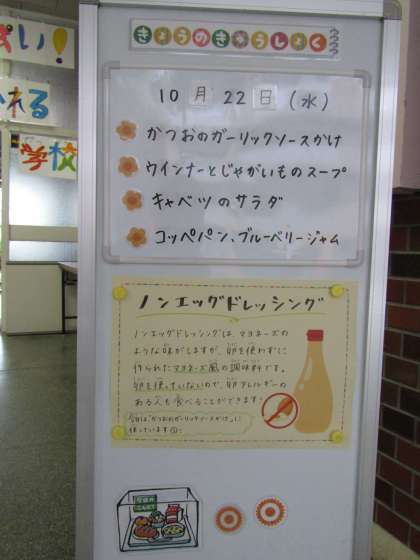 ぱい!
れる
学校
きょうのきゅうしょく
10月22日(水)
かつおのガーリックソースかけ
ウインナーとじゃがいものスープ
キャベツのサラダ
コッペパン、ブルーベリージャム
ノンエッグドレッシング
ノンエッグドレッシングは、マヨネーズの
ような味がしますが、卵を使わずに
作られたマヨネーズ風の調味料です。
卵を使していないので、卵アレルギーの
ある人も食べることができます!
今日は「かつおのガーリックソースかけ」に
使っています